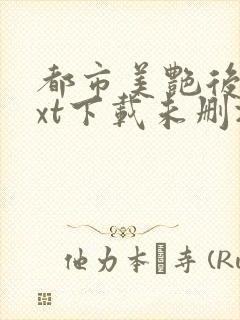 都市美艷後
xt下載未删
他力本 寺 (Ru